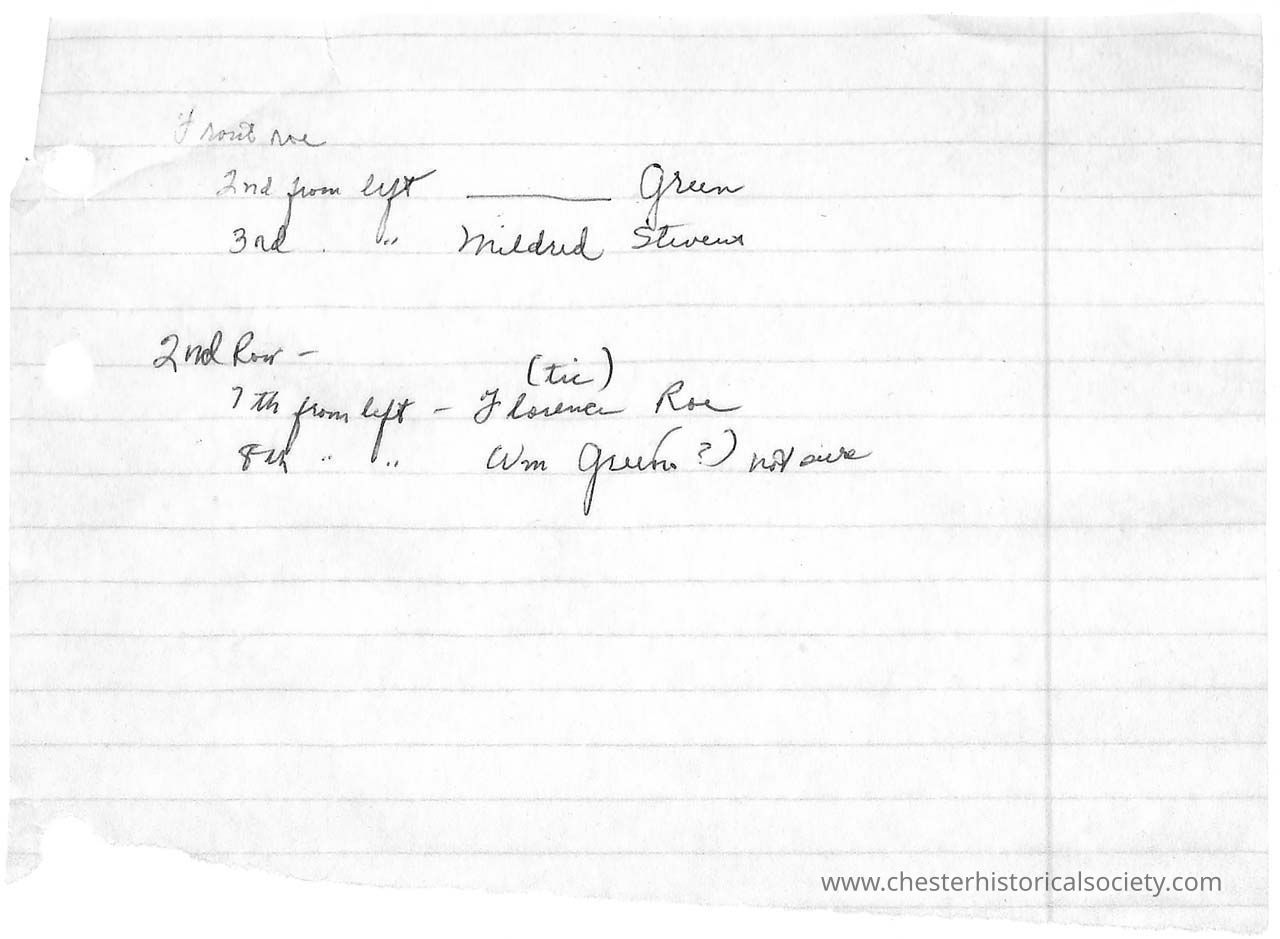 Front roe
2nd from left ______ Green
3rd " Mildred Stevens
2nd Row -
(tic)
7th from left - Florence Roe
8th " " Wm Green (?) not sure
www.chesterhistoricalsociety.com